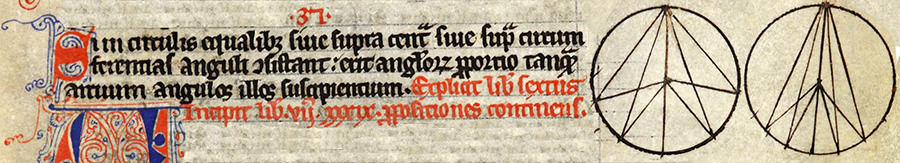 ·37·
Si in circulis equalibꝫ siue supra centꝝ siue sup̃ circum
ferentias anguli ↄsistant : erit angloꝝ ꝓportio tanꝗ̃
arcuum angulos illos suscipientium. Explicit lib᷒ sextus
Incipit lib. vij. xxxix. ꝓpositiones continens.